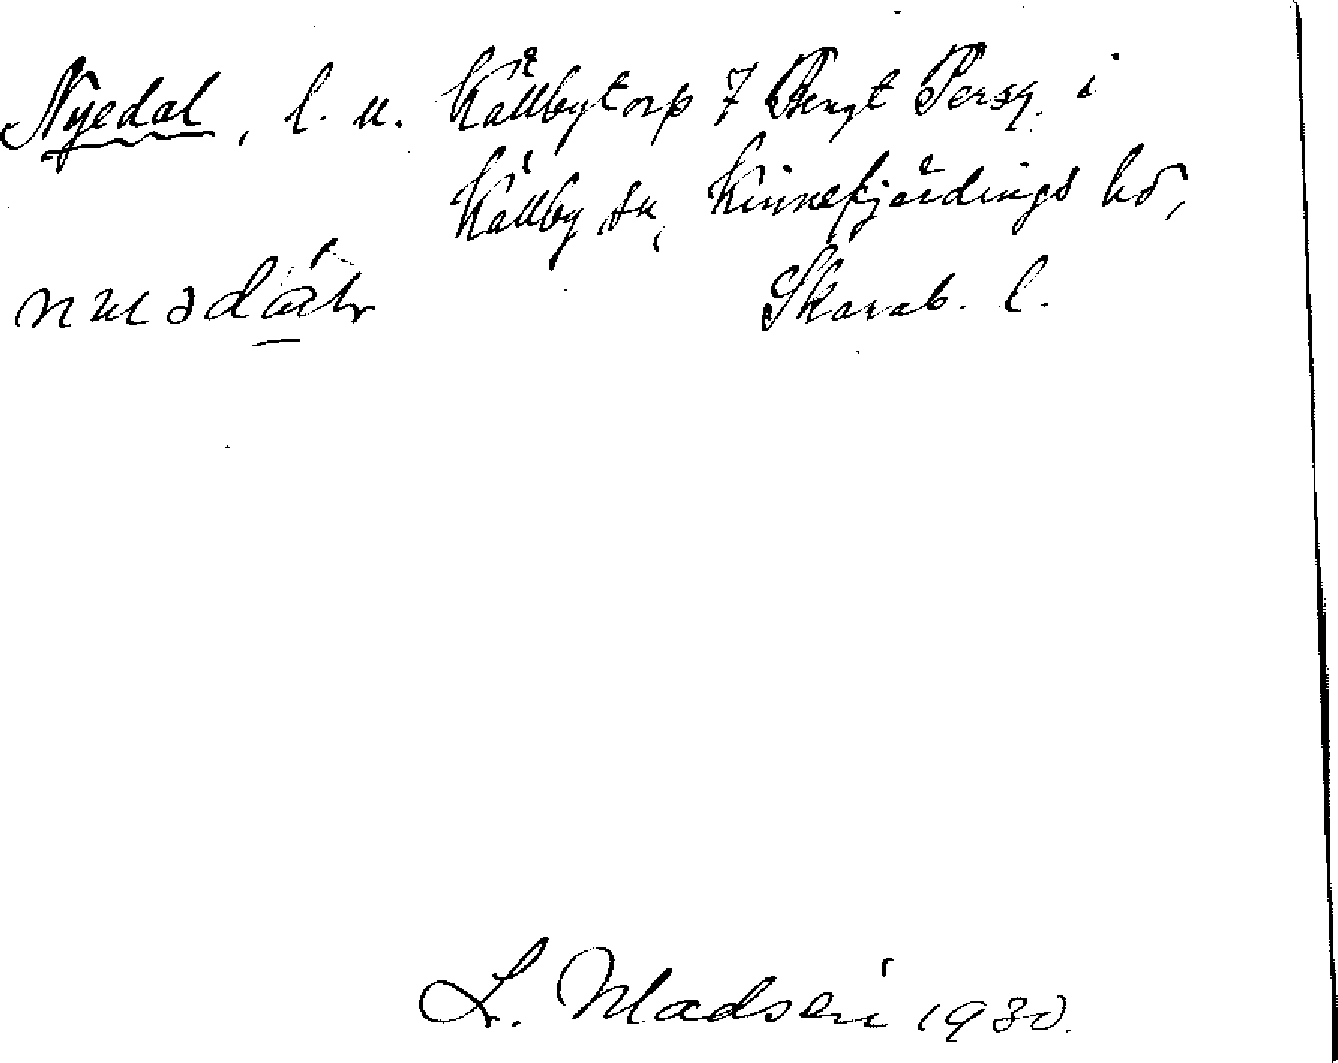 Nyedal, l. u. Källbytorp 7 Bengt Persg. i
Källby sn, Kinnefjärdings hd,
Skarab. l.
L. Madsen 1930.